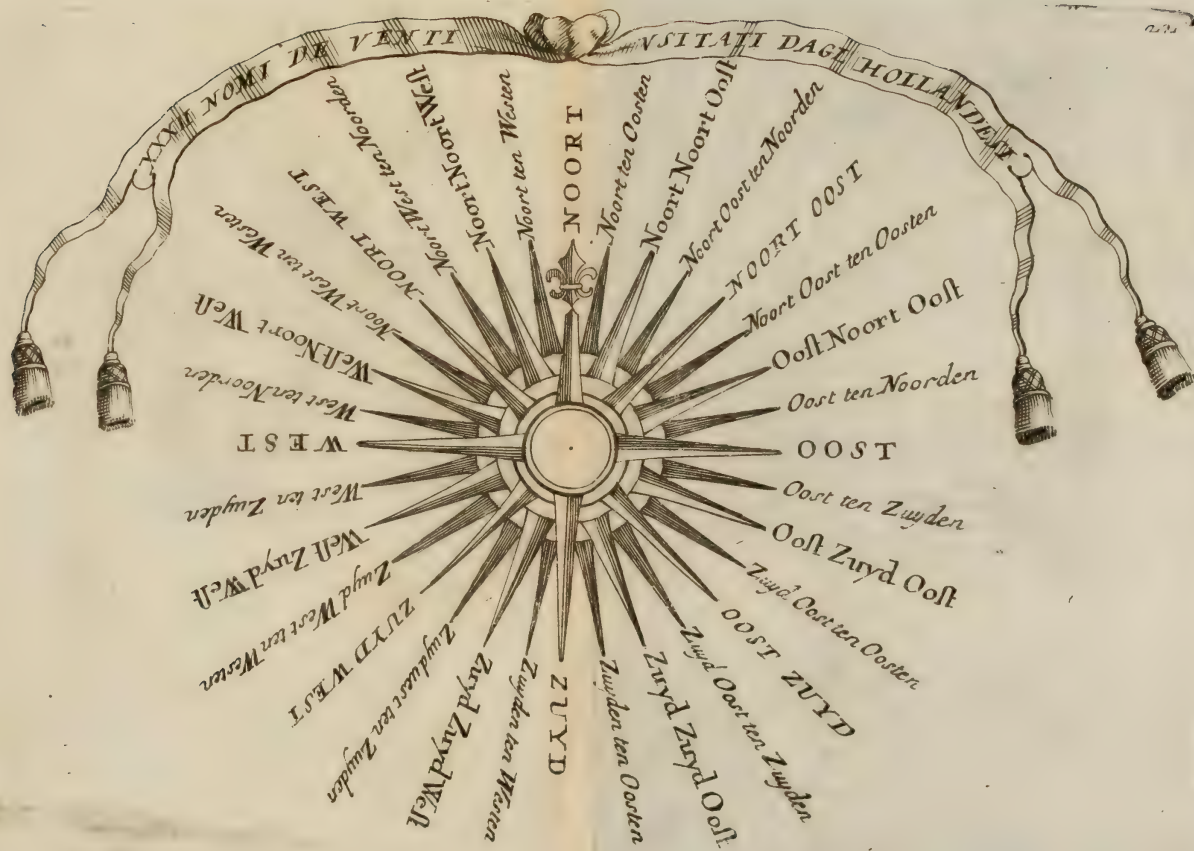 XXXII NOMI DE VENTI VSITATI DAGL HOLLANDESI
NOORT
Noort ten Oosten
Noort Noort Ooſt
Noort Oost ten Noorden
NOORT OOST
Noort Oost ten Oosten
Ooſt Noort Ooſt
Oost ten Noorden
OOST
Oost ten Zuyden
Ooſt Zuyd Ooſt
Zuyd Oost ten Oosten
OOST ZUYD
Zuyd Oost ten Zuyden
Zuyd Zuyd Ooſt
Zuyden ten Oosten
ZUYD
Zuyden ten Westen
Zuyd Zuyd Weſt
Zuyduest ten Zuyden
ZUYD WEST
Zuyd West ten Westen
Weſt Zuyd Weſt
West ten Zuyden
WEST
West ten Noorden
Weſt Noort Weſt
Noort West ten Westen
NOORT WEST
Noort West ten Noorden
Noort Noort Weſt
Noort ten Westen